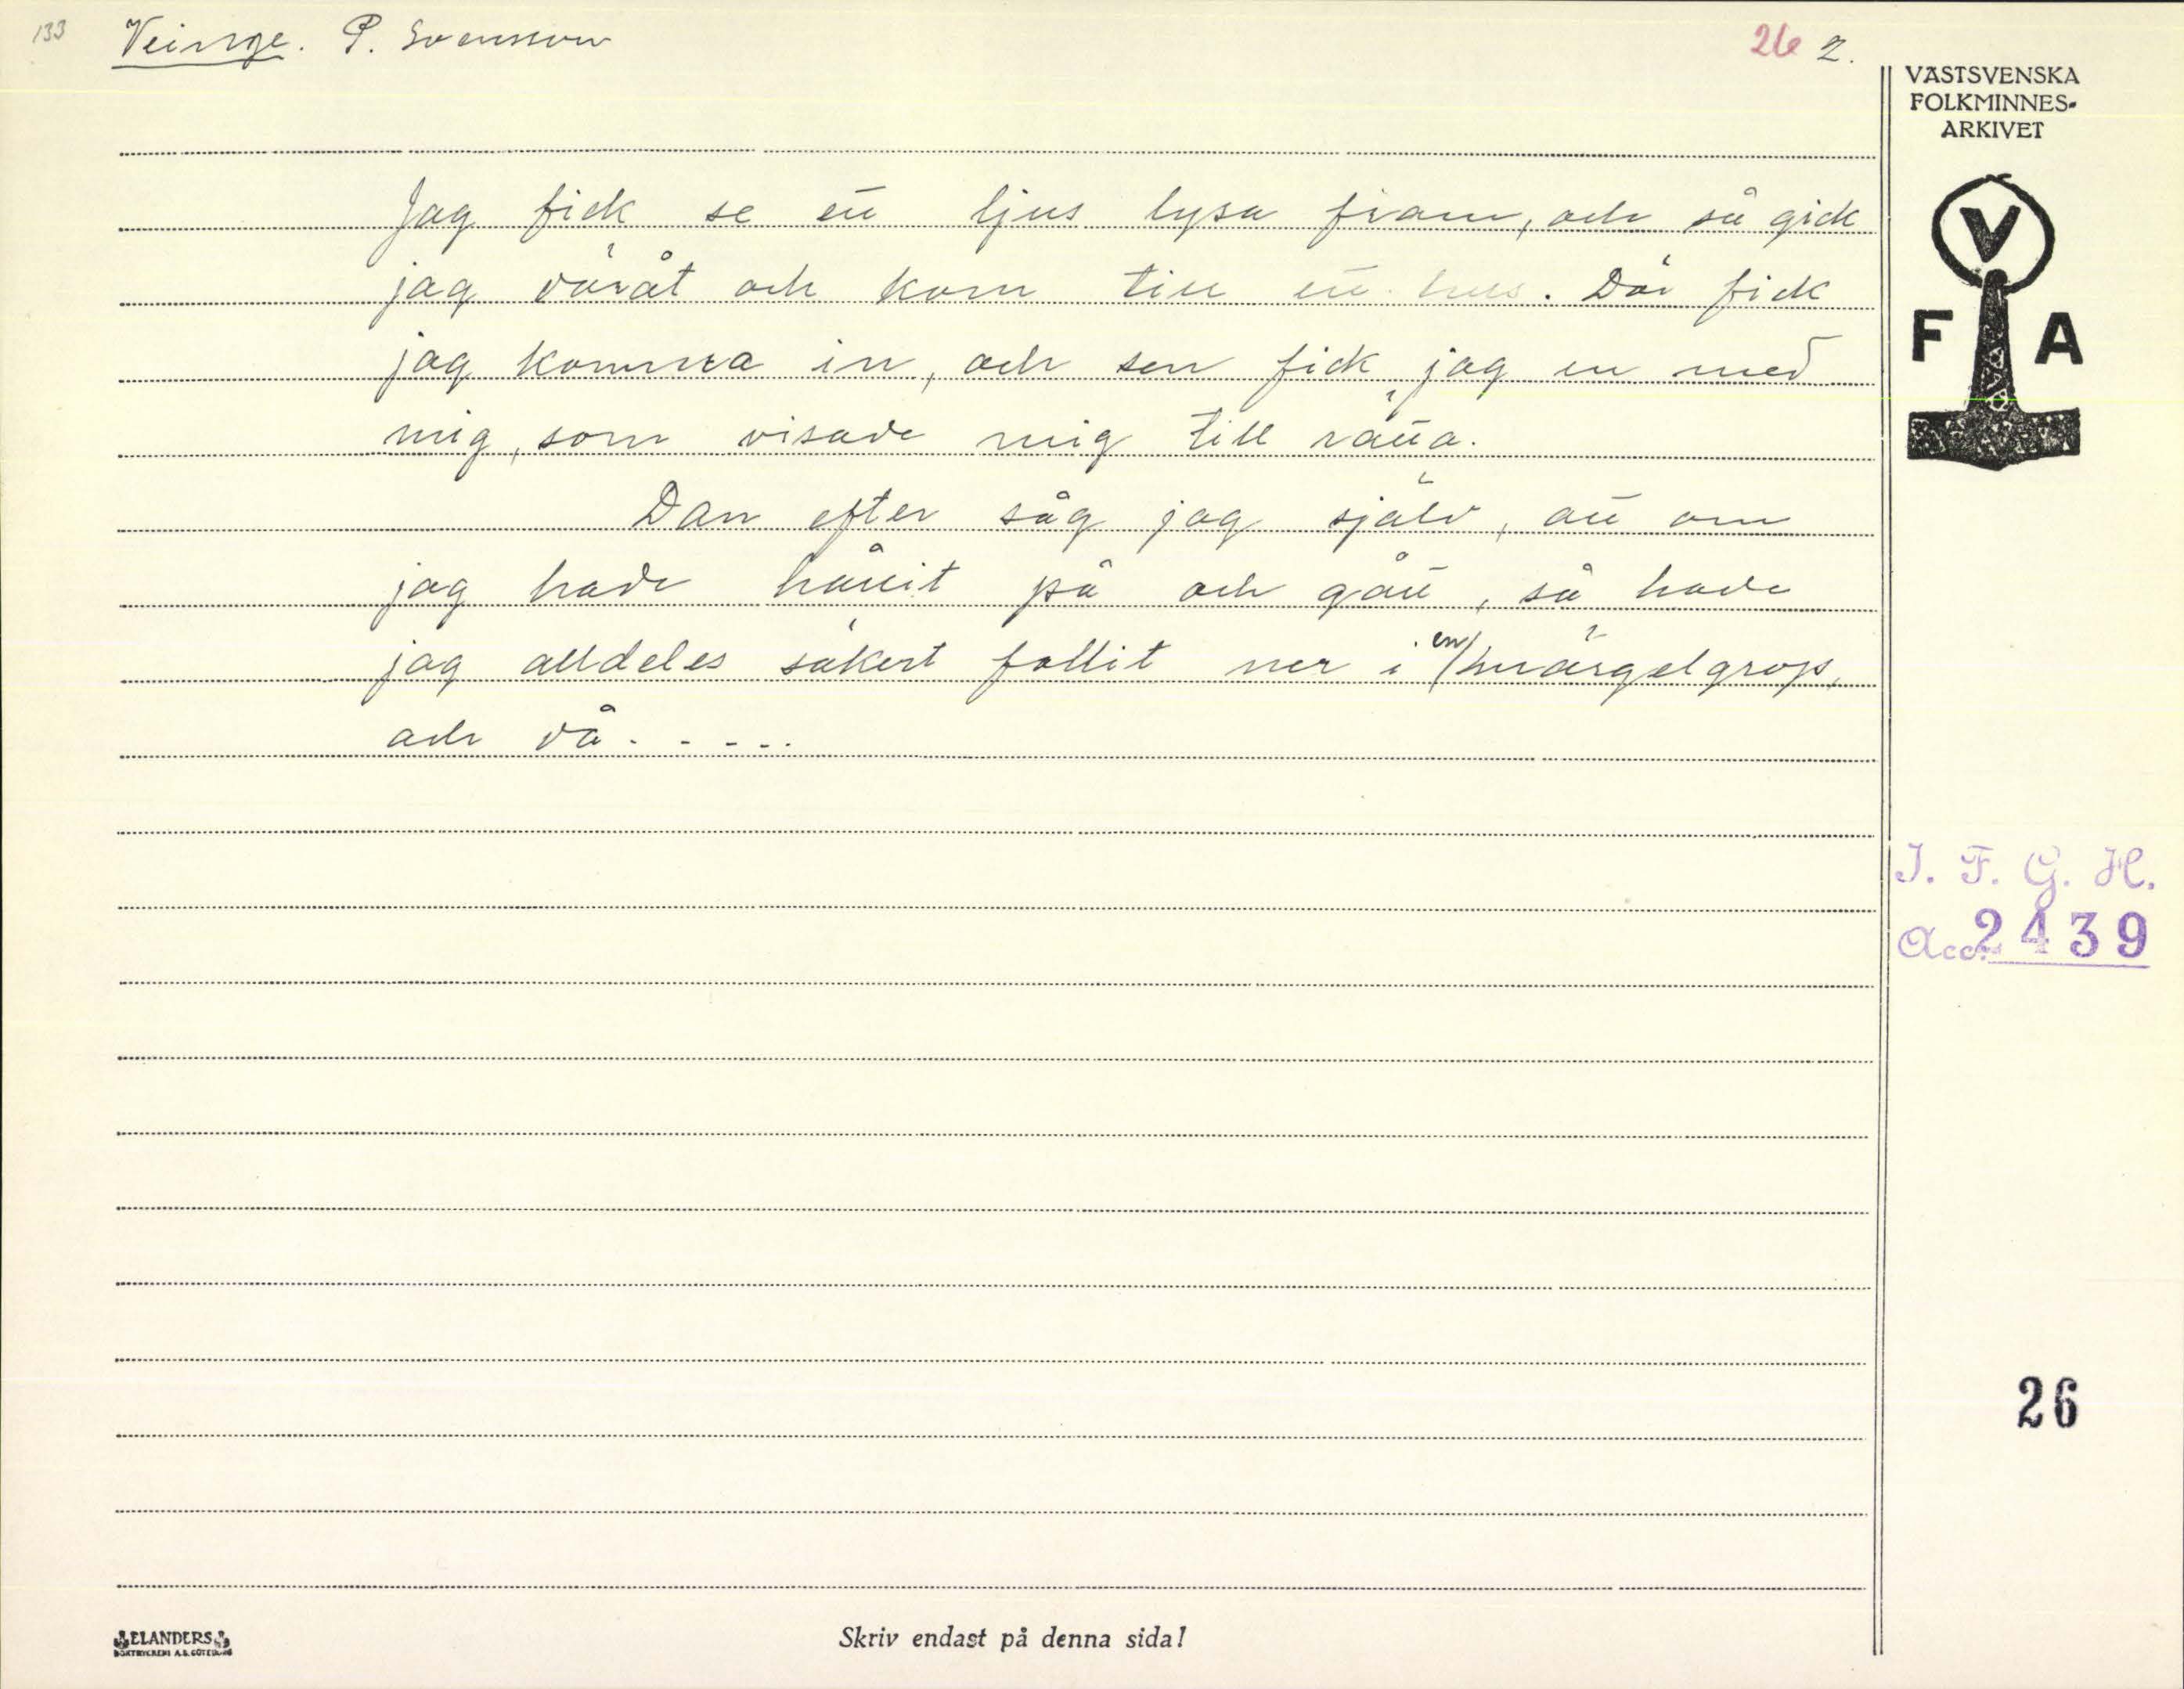 133 Veinge. P. Svensson 26 2.
VÄSTSVENSKA
FOLKMINNES-
ARKIVET
Jag fick se ett ljus lysa fram, och så gick
jag däråt och kom till ett hus. Där fick
jag komma in, och sen fick jag en med
mig, som visade mig till rätta.
Dan efter såg jag själv, att om
jag hade hållit på och gått, så hade
jag alldeles säkert fallit ner i en märgelgrop,
och då.....
V
F A
I. F. G. H.
Acc. 2439
26
ELANDERS
BOKTRYCKERI A.B. GÖTEBORG
Skriv endast på denna sida!